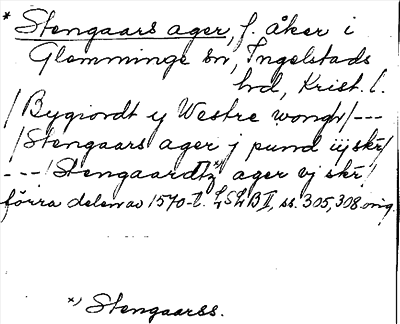 * Stengaars ager, f. åker i
Glemminge sn, Ingelstads
hd, Krist. l.
/ Bygiondt ij Westre wongr / ---
/ Stengaars ager j pund iij skr /
--- / Stengaardtz *) ager vj skr /
förra delen av 1570-t. LSLB II, ss. 305, 308 orig.
*) Stengaarss.